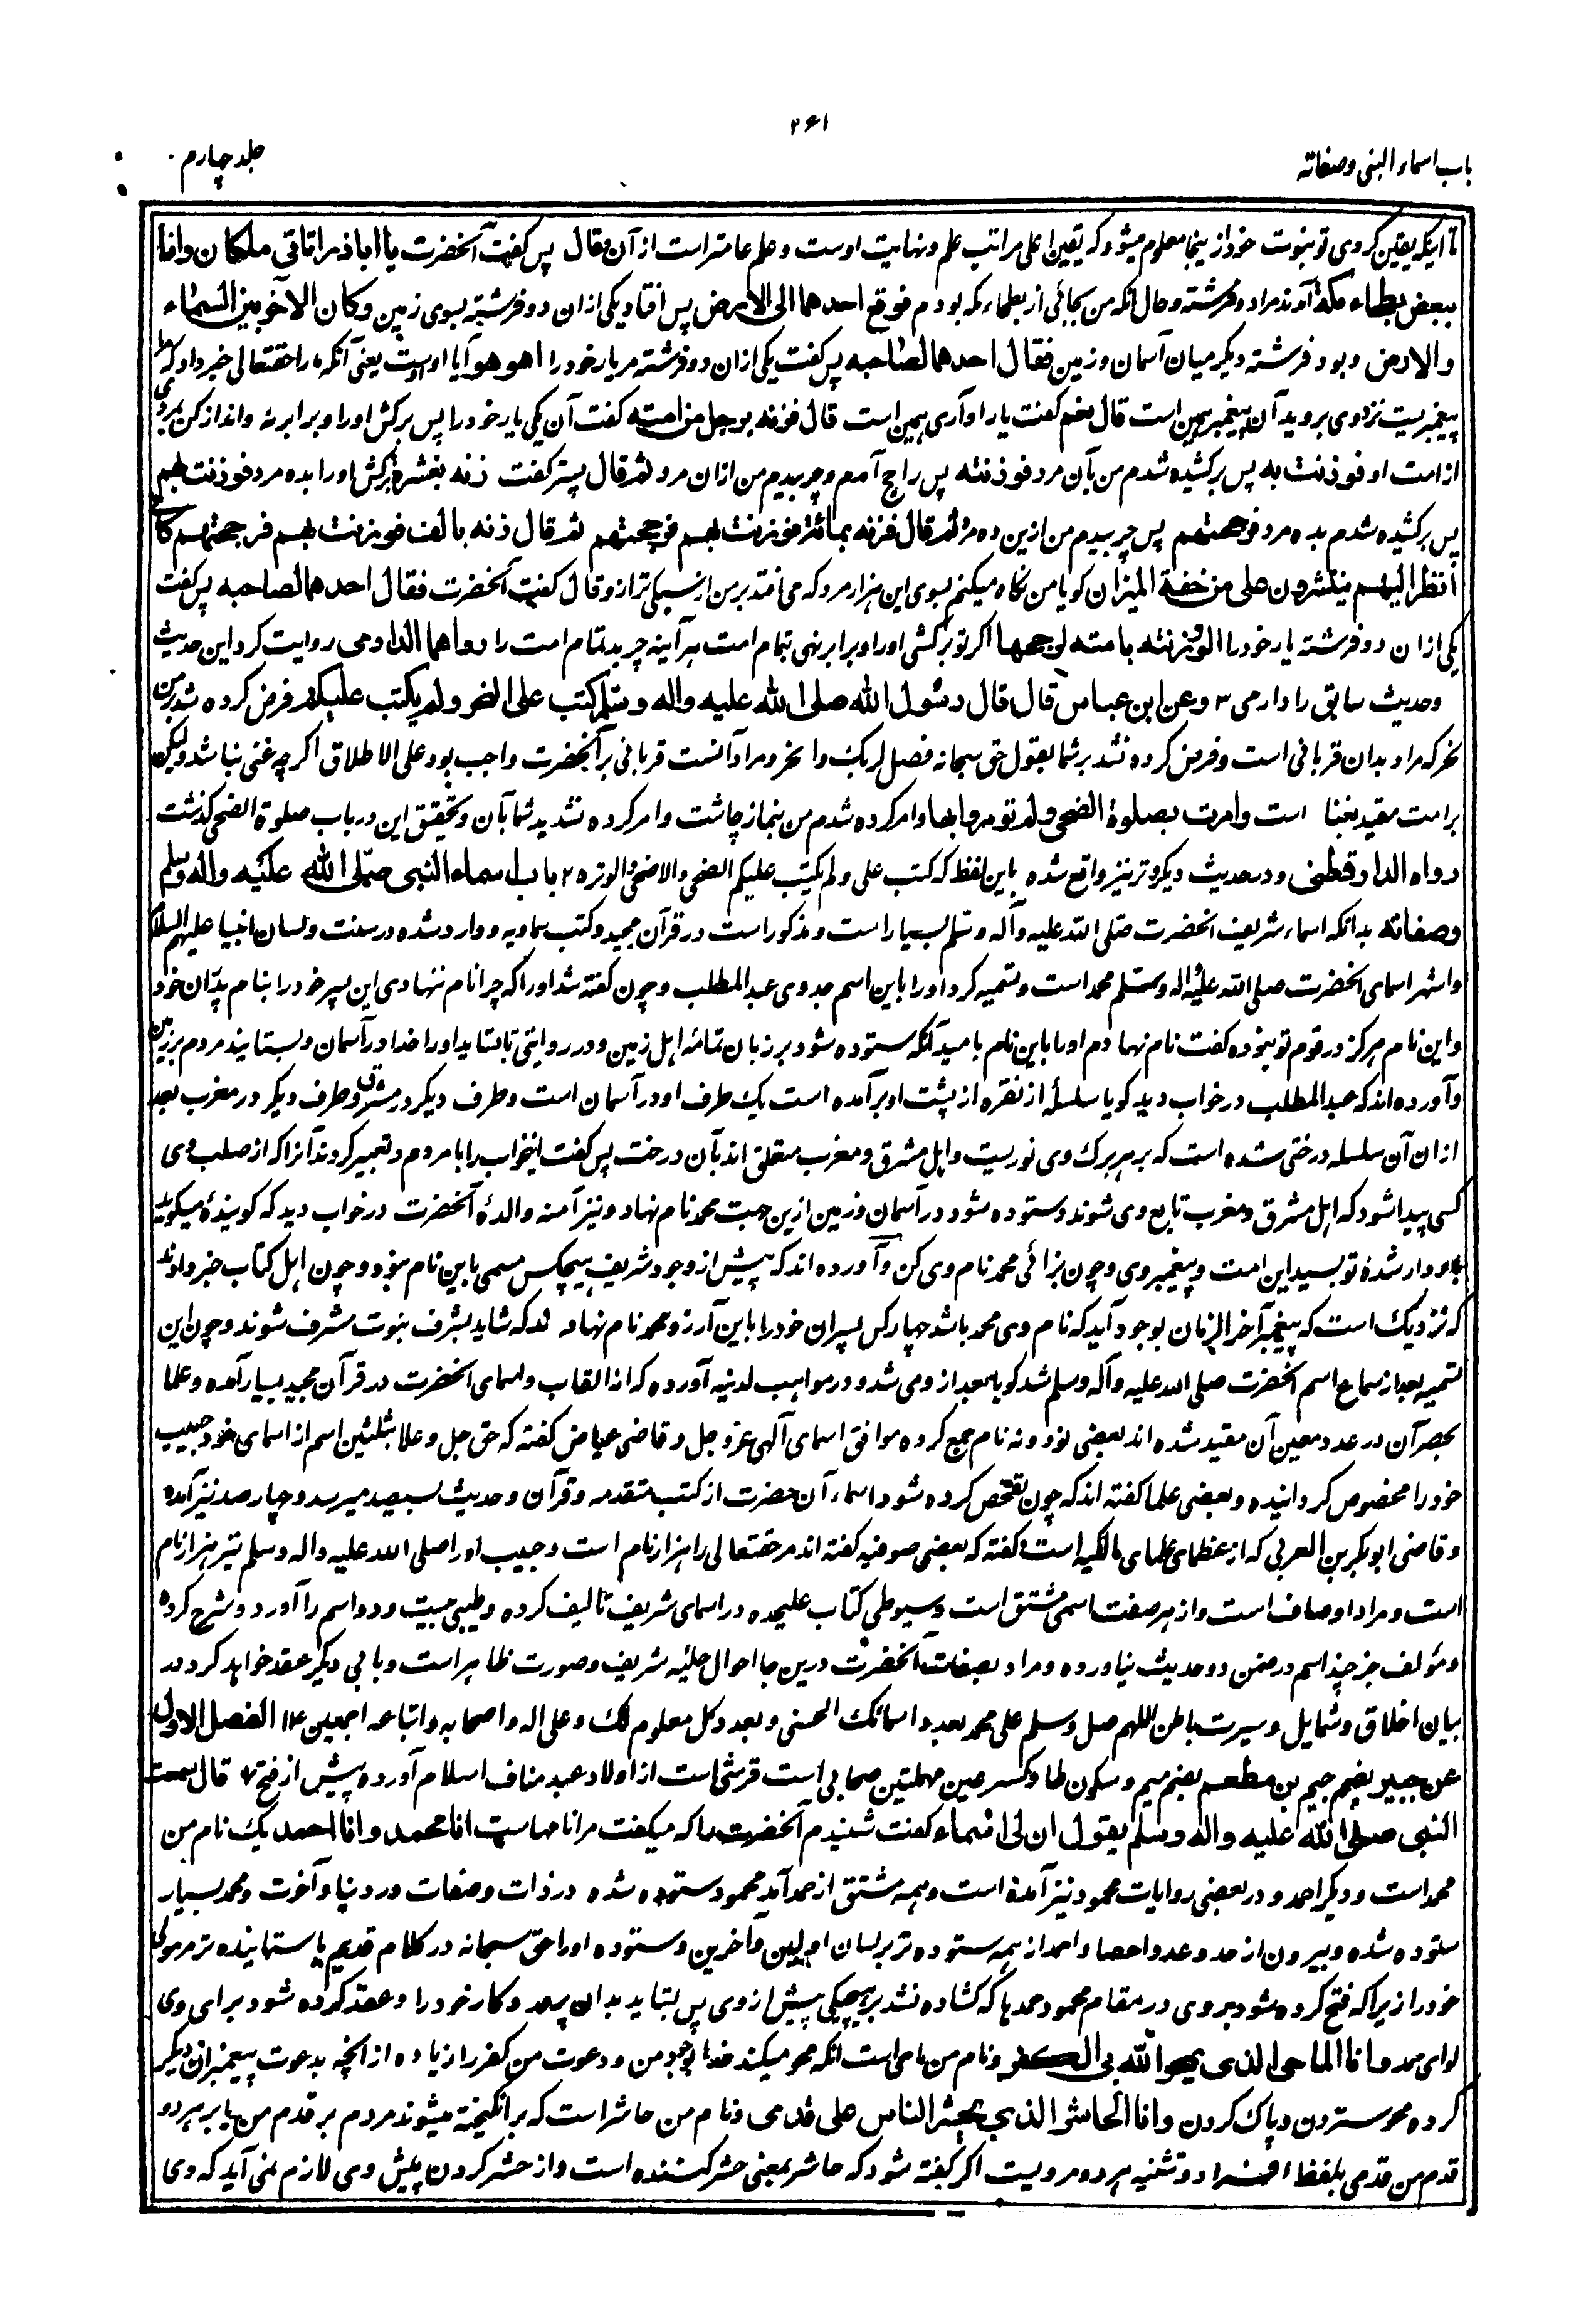 ۴۶۱
باب اسماء النبی وصفاته
جلد چهارم
تا اینکه یقین کردی تو بنبوت خود ازینجا معلوم میشود که یقین اعلی مراتب علم و نهایت اوست و علم عامتر است از آن فقال پس گفت آنحضرت یا اباذر اتانی ملکان وانا
ببعض بطحاء مکة آمدند مرا دو فرشته و حال آنکه من بجائی از بطحاء مکه بودم فوقع احدهما الی الارض پس افتاد یکی ازان دو فرشته بسوی زمین وکان الآخر بین السماء
والارض وبود فرشته دیگر میان آسمان و زمین فقال احدهما لصاحبه پس گفت یکی ازان دو فرشته مر یار خود را اهو هو آیا او اوست یعنی آنکه ما را حقتعالی خبر داد که
پیغمبریست نزد وی بروید آن پیغمبر همین است قال نعم گفت یار او آری همین است قال فزنه برجل من امته گفت آن یکی یار خود را پس برکش او را و برابر نه و اندازه کن بمردی
از امت او فوزنت به پس برکشیده شدم من بآن مرد فوزنته پس راجح آمدم و چربیدم من ازان مرد ثم قال پستر گفت زنه بعشرة برکش او را بده مرد فوزنت بهم
پس برکشیده شدم بده مرد فرجحتهم پس چربیدم من ازین ده مرد ثم قال فزنه بمائة فوزنت بهم فرجحتهم ثم قال زنه بالف فوزنت بهم فرجحتهم کانی
انظر الیهم ینتثرون علی من خفة المیزان گویا من نگاه میکنم بسوی این هزار مرد که می افتد بر من از سبکی ترازو قال گفت آنحضرت فقال احدهما لصاحبه پس گفت
یکی ازان دو فرشته یار خود را لو وزنته بامته لرجحها اگر تو برکشی او را و برابر نهی بتمام امت هر آینه چربد تمام امت را رواهما الدارمی روایت کرد این حدیث
وحدیث سابق را دارمی ۳ وعن ابن عباس قال قال رسول الله صلی الله علیه واله وسلم کتب علی النحر ولم یکتب علیکم فرض کرده شد بر من
نحر که مراد بدان قربانی است و فرض کرده نشد بر شما بقول حق سبحانه فصل لربک وانحر و مراد آنست قربانی بر آنحضرت واجب بود علی الاطلاق اگرچه غنی نباشد ولیکن
بر امت مقید بغنا است وامرت بصلوة الضحی ولم تومروا بها وامر کرده شدم من بنماز چاشت و امر کرده نشدید شما بآن و تحقیق این در باب صلوة الضحی گذشت
رواه الدارقطنی و در حدیث دیگر وتر نیز واقع شده باین لفظ که کتب علی ولم یکتب علیکم الضحی والاضحی والوتر ۲۵ باب اسماء النبی صلی الله علیه واله وسلم
وصفاته بدانکه اسماء شریف آنحضرت صلی الله علیه وآله وسلم بسیار است و مذکور است در قرآن مجید و کتب سماویه و وارد شده در سنت و لسان انبیا علیهم السلام
واشهر اسمای آنحضرت صلی الله علیه واله وسلم محمد است و تسمیه کرد او را باین اسم جد وی عبد المطلب و چون گفته شد او را که چرا نام ننهادی این پسر خود را بنام پدران خود
واین نام هرگز در قوم تو نبوده گفت نام نهادم او را باین نام بامید آنکه ستوده شود بر زبان تمامه اهل زمین و در روایتی تا بستاید او را خدا در آسمان و بستایند مردم بر زمین
وآورده اند که عبد المطلب در خواب دید گویا سلسلۀ از نقره از پشت او برآمده است یک طرف او در آسمان است و طرف دیگر در مشرق و طرف دیگر در مغرب بعد
ازان آن سلسله درختی شده است که بر هر برگ وی نوریست و اهل مشرق و مغرب متعلق اند بآن درخت پس گفت اینخواب را با مردم و تعبیر کردند آنرا که از صلب وی
کسی پیدا شود که اهل مشرق و مغرب تابع وی شوند و ستوده شود در آسمان و زمین ازین جهت محمد نام نهاد و نیز آمنه والدۀ آنحضرت در خواب دید که گویندۀ میگوید
باردار شدۀ تو بسید این امت و پیغمبر وی و چون بزائی محمد نام وی کن وآورده اند که پیش از وجود شریف هیچکس مسمی باین نام نبود و چون اهل کتاب خبر دادند
که نزدیک است که پیغمبر آخر الزمان بوجود آید که نام وی محمد باشد چهار کس پسران خود را باین آرزو محمد نام نهاده اند که شاید بشرف نبوت مشرف شوند و چون این
تسمیه بعد از سماع اسم آنحضرت صلی الله علیه وآله وسلم شد گویا بعد از وی شد و در مواهب لدنیه آورده که از القاب و اسمای آنحضرت در قرآن مجید بسیار آمده و علما
بحصر آن در عدد معین آن مقید شده اند بعضی نود و نه نام جمع کرده موافق اسمای الهی عز و جل و قاضی عیاض گفته که حق جل و علا بثلثین اسم از اسمای خود حبیب
خود را مخصوص گردانیده و بعضی علما گفته اند که چون تفحص کرده شود اسماء آن حضرت از کتب متقدمه و قرآن و حدیث بسیصد میرسد و چار صد نیز آمده
و قاضی ابوبکر بن العربی که از عظمای علمای مالکیه است گفته که بعضی صوفیه گفته اند مر حقتعالی را هزار نام است و حبیب او را صلی الله علیه واله وسلم نیز هزار نام
است و مراد اوصاف است و از هر صفت اسمی مشتق است و سیوطی کتاب علیحده در اسمای شریف تالیف کرده و طیبی بیست و دو اسم را آورد و شرح کرده
ومؤلف جز چند اسم در ضمن دو حدیث نیاورده و مراد بصفات آنحضرت درین جا احوال حلیه شریف و صورت ظاهر است و بابی دیگر عقد خواهد کرد در
بیان اخلاق و شمایل و سیرت باطن اللهم صل وسلم علی محمد بعدد اسمائک الحسنی و بعدد کل معلوم لک وعلی اله واصحابه واتباعه اجمعین ۱۲ الفصل الاول
عن جبیر بضم جیم بن مطعم بضم میم و سکون طا و کسر عین مهملتین صحابی است قرشی است از اولاد عبد مناف اسلام آورده پیش از فتح قال سمعت
النبی صلی الله علیه واله وسلم یقول ان لی اسماء گفت شنیدم آنحضرت را که میگفت مرا نامهاست انا محمد وانا احمد یک نام من
محمد است و دیگر احمد و در بعضی روایات محمود نیز آمده است و همه مشتق از حمد آمد محمود ستوده شده در ذات و صفات در دنیا و آخرت و محمد بسیار
ستوده شده و بیرون از حد و عد و احصا و احمد از همه ستوده تر بر لسان اولین و آخرین و ستوده او را حق سبحانه در کلام قدیم یا ستاینده تر مر مولی
خود را زیرا که فتح کرده شود بر وی در مقام محمود حمدها که گشاده نشد بر هیچیکی پیش از وی پس بستاید بدان پروردگار خود را و عقد کرده شود برای وی
لوای حمد وانا الماحی الذی یمحو الله بی الکفر و نام من ماحی است آنکه محو میکند خدا بوجود من و دعوت من کفر را زیاده از انچه بدعوت پیغمبران دیگر
کرده محو ستردن و پاک کردن وانا الحاشر الذی یحشر الناس علی قدمی و نام من حاشر است که برانگیخته میشوند مردم بر قدم من یا بر هر دو
قدم من قدمی بلفظ افراد و تثنیه هر دو مرویست اگر گفته شود که حاشر بمعنی حشر کننده است و از حشر کردن پیش وی لازم نمی آید که وی